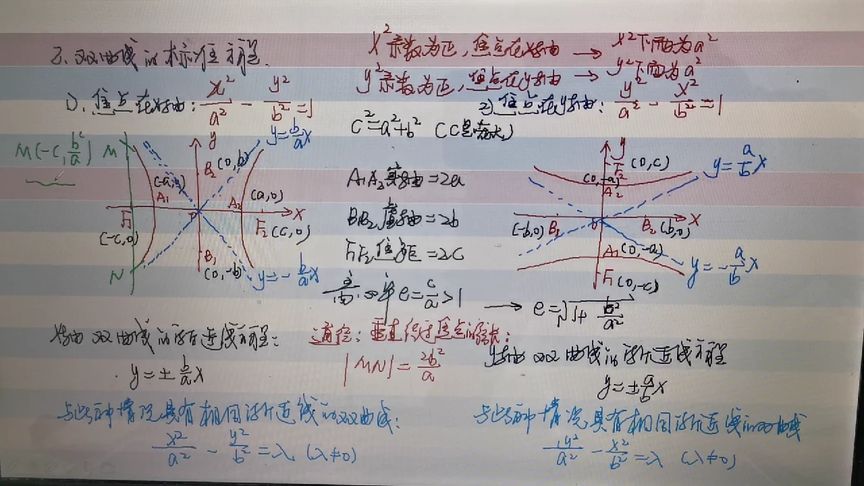 3、双曲线的标准方程.
x²系数为正,焦点在x轴 → x²下面为a²
y²系数为正,焦点在y轴 → y²下面为a²
1)、焦点在x轴: x²/a² - y²/b² = 1
2)焦点在y轴: y²/a² - x²/b² = 1
c²=a²+b² (C是最大)
M(-c, b²/a)
M
y
B₂ (0,b)
y=b/a x
(-a,0)
A₁
A₂
(a,0)
x
F₁
(-c,0)
F₂
(c,0)
B₁
(0,-b)
N
y=-b/a x
A₁A₂实轴=2a
B₁B₂虚轴=2b
F₁F₂焦距=2c
离心率e=c/a>1 → e=√(1+b²/a²)
y
F₂ (0,c)
A₂
y=a/b x
(-b,0) B₁
0
B₂ (b,0)
x
A₁(0,-a)
F₁ (0,-c)
y=-a/b x
x轴双曲线的渐近线方程:
y=±b/a x
通径:垂直经过焦点的弦长:
|MN|=2b²/a
y轴双曲线的渐近线方程
y=±a/b x
与此种情况具有相同渐近线的双曲线:
x²/a² - y²/b² = λ (λ≠0)
与此种情况具有相同渐近线的双曲线
y²/a² - x²/b² = λ (λ≠0)